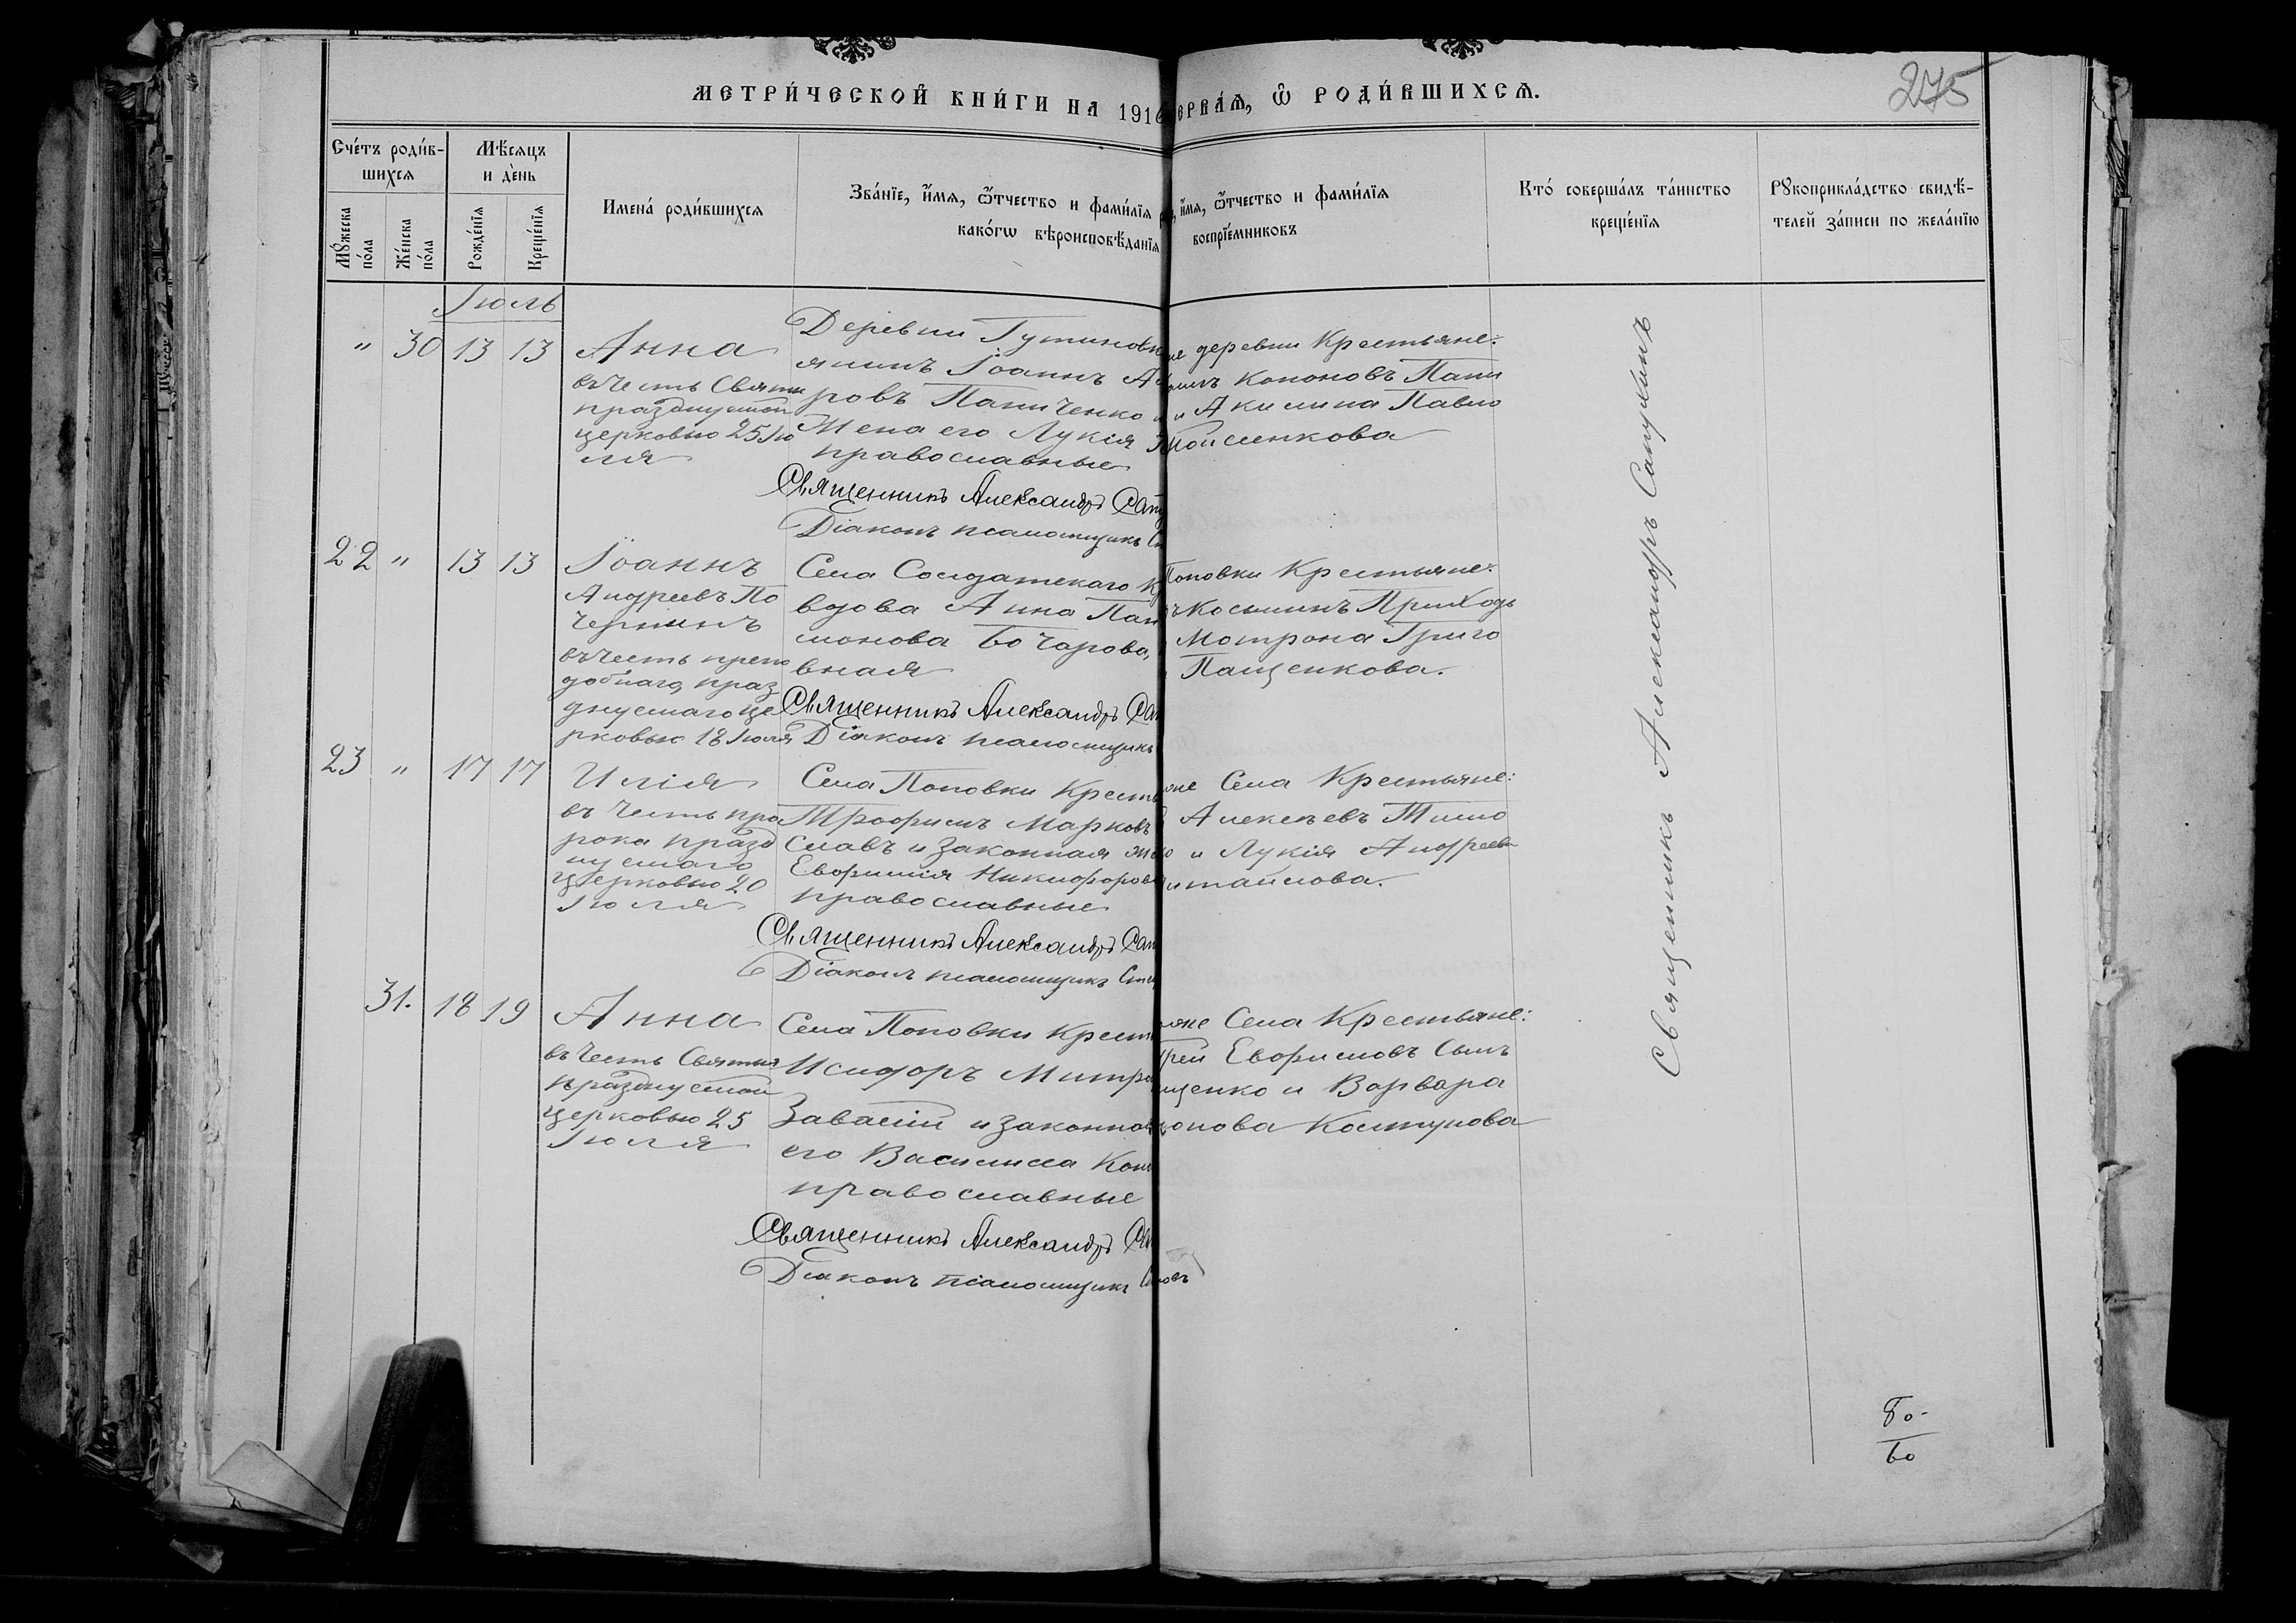 МЕТРИ́ЧЕСКОЙ КНИ́ГИ НА 1916
ЕРВА́Я, Ѡ҆ РОДИ́ВШИХСѦ.
275
Сче́тъ роди́в-
шихсѧ
Мꙋ́жеска по́ла
Же́нска по́ла
Мѣ́сѧцъ
и де́нь
Рожде́нїѧ
Креще́нїѧ
Имена́ роди́вшихсѧ
Зва́нїе, и҆́мѧ, ѻ҆́тчество и фами́лїѧ
како́гѡ вѣроисповѣ́данїѧ
и҆́мѧ, ѻ҆́тчество и фами́лїѧ
воспрїе́мниковъ
Кто́ соверша́лъ та́инство
креще́нїѧ
Рꙋкоприкла́дство свидѣ́-
телей за́писи по жела́нїю
Іюль
" 30 13 13
Анна
въ честь Святы
празднуемой
церковью 25 Ію
ля
Деревни Гутиновк
янинъ Іоаннъ А
ровъ Паниченко и
Жена его Лукія
православные
Священникъ Александръ Сап
Діаконъ псаломщикъ
деревни Крестьяне:
Кононовъ Пани
и Акилина Павло
Моисенкова
22 " 13 13
Іоаннъ
Андреевъ По
въ честь препо
добнаго, праз
днуемаго це
рковью 18 Іюля
Села Солдатскаго К
вдова Анна Пан
монова Бочарова,
вная
Священникъ Александръ Сап
Діаконъ псаломщикъ
Поповки Крестьяне:
Косьминъ Приходь
Мотрона Григо
Пащенкова.
23 " 17 17
Илія
въ честь про
рока празд
нуемаго
церковью 20
Іюля
Села Поповки Крестья
Трофимъ Марковъ
Славъ и законная же
Евфимія Никифорова
православные
Священникъ Александръ Сап
Діаконъ псаломщикъ Сте
Села Крестьяне:
Алексѣевъ Тимо
и Лукія Андреев
31. 18 19
Анна
въ честь Святыя
празднуемой
церковью 25
Іюля
Села Поповки Крест
Исидоръ Митро
и законная
его Василисса Кон
православные
Священникъ Александръ Сап
Діаконъ псаломщикъ
Села Крестьяне:
Евфимовъ Сынъ
щенко и Варвара
оноваКолтунова
Священникъ Александръ Сапухинъ
80-
60